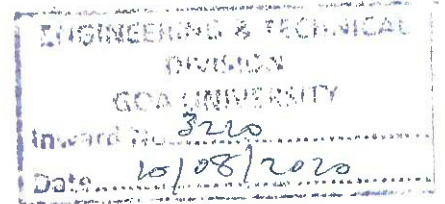 ENGINEERING & TECHNICAL
DIVISION
GOA UNIVERSITY
Inward No. 3220
Date 10/08/2020